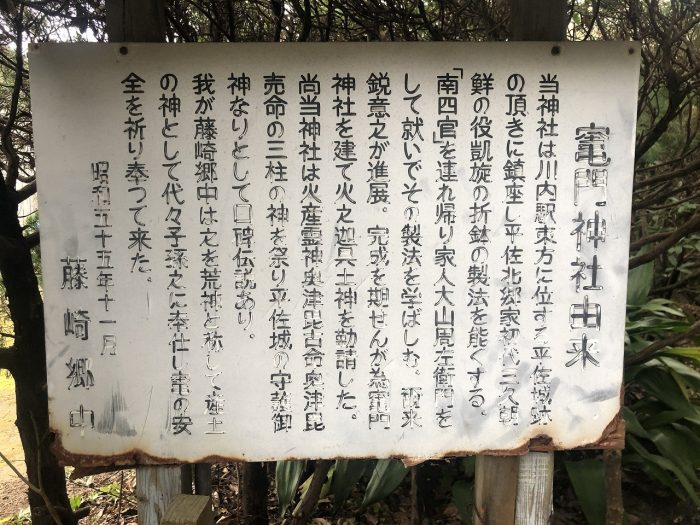 竈門神社由来
当神社は川内駅東方に位する平佐城跡
の頂きに鎮座し平佐北郷家初代三久朝
鮮の役凱旋の折鉢の製法を能くする。
「南四官」を連れ帰り家人大山周左衛門を
して就いでその製法を学ばしむ。爾来
鋭意之が進展。完成を期せんが為竈門
神社を建て火之迦具土神を勧請した。
尚当神社は火産霊神奥津毘古命奥津毘
売命の三柱の神を祭り平佐城の守護御
神なりとして口碑伝説あり。
我が藤崎郷中は之を荒神と称して産土
の神として代々子孫之に奉仕し常の安
全を祈り奉つて来た。
昭和五十五年十一月
藤崎郷中